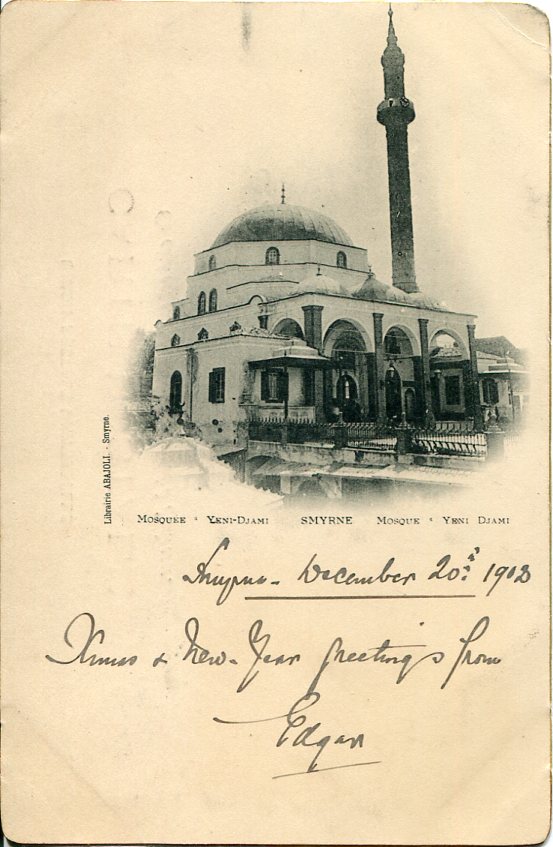 Librairie ABAJOLI. - Smyrne.
MOSQUÉE "YENI-DJAMI SMYRNE MOSQUE "YENI DJAMI
Smyrna - December 20th 1902
Xmas & New-Year greetings from
Edgar